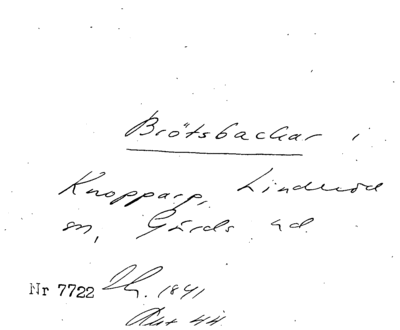 Brötsbackar i
Knopparp, Linderöd
sn, Gärds hd.
Nr 7722 1841